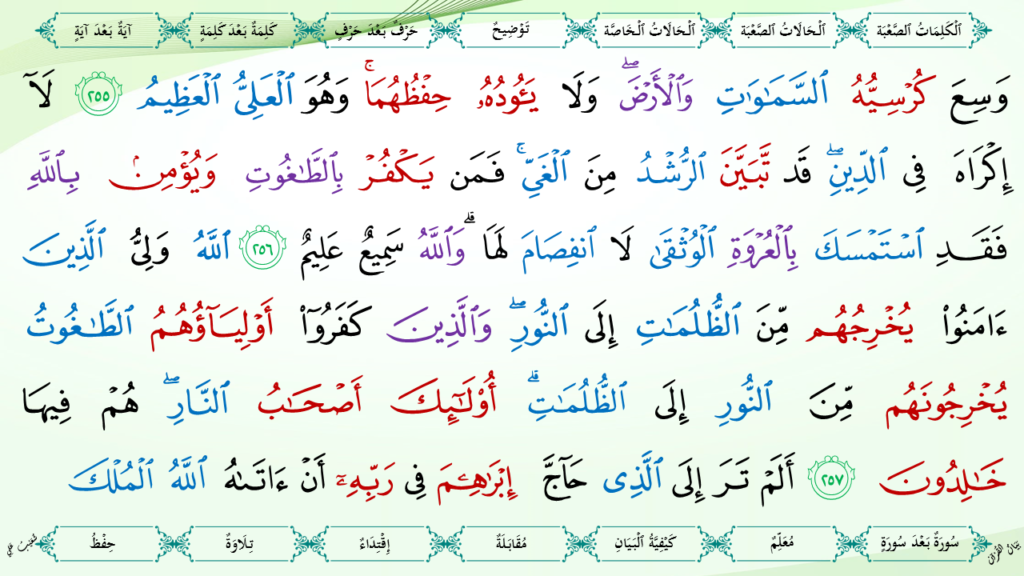 اَلْكَلِمَاتُ الصَّعْبَة اَلْحَالَاتُ الصَّعْبَة اَلْحَالَاتُ الْخَاصَّة تَوْضِيحٌ حَرْفٌ بَعْدَ حَرْفٍ كَلِمَةٌ بَعْدَ كَلِمَةٍ آيَةٌ بَعْدَ آيَةٍ
وَسِعَ كُرْسِيُّهُ ٱلسَّمَـٰوَٰتِ وَٱلْأَرْضَ ۖ وَلَا يَـُٔودُهُۥ حِفْظُهُمَا ۚ وَهُوَ ٱلْعَلِىُّ ٱلْعَظِيمُ ٢٥٥ لَآ
إِكْرَاهَ فِى ٱلدِّينِ ۖ قَد تَّبَيَّنَ ٱلرُّشْدُ مِنَ ٱلْغَىِّ ۚ فَمَن يَكْفُرْ بِٱلطَّـٰغُوتِ وَيُؤْمِنۢ بِٱللَّهِ
فَقَدِ ٱسْتَمْسَكَ بِٱلْعُرْوَةِ ٱلْوُثْقَىٰ لَا ٱنفِصَامَ لَهَا ۗ وَٱللَّهُ سَمِيعٌ عَلِيمٌ ٢٥٦ ٱللَّهُ وَلِىُّ ٱلَّذِينَ
ءَامَنُوا۟ يُخْرِجُهُم مِّنَ ٱلظُّلُمَـٰتِ إِلَى ٱلنُّورِ ۖ وَٱلَّذِينَ كَفَرُوٓا۟ أَوْلِيَآؤُهُمُ ٱلطَّـٰغُوتُ
يُخْرِجُونَهُم مِّنَ ٱلنُّورِ إِلَى ٱلظُّلُمَـٰتِ ۗ أُو۟لَـٰٓئِكَ أَصْحَـٰبُ ٱلنَّارِ ۖ هُمْ فِيهَا
خَـٰلِدُونَ ٢٥٧ أَلَمْ تَرَ إِلَى ٱلَّذِى حَآجَّ إِبْرَٰهِـۧمَ فِى رَبِّهِۦٓ أَنْ ءَاتَىٰهُ ٱللَّهُ ٱلْمُلْكَ
سُورَةٌ بَعْدَ سُورَةٍ مُعَلِّمٌ كَيْفِيَّةُ الْبَيَانِ مُقَابَلَةٌ إِقْتِدَاءٌ تِلَاوَةٌ حِفْظٌ
بَيَانُ الْقُرْآن